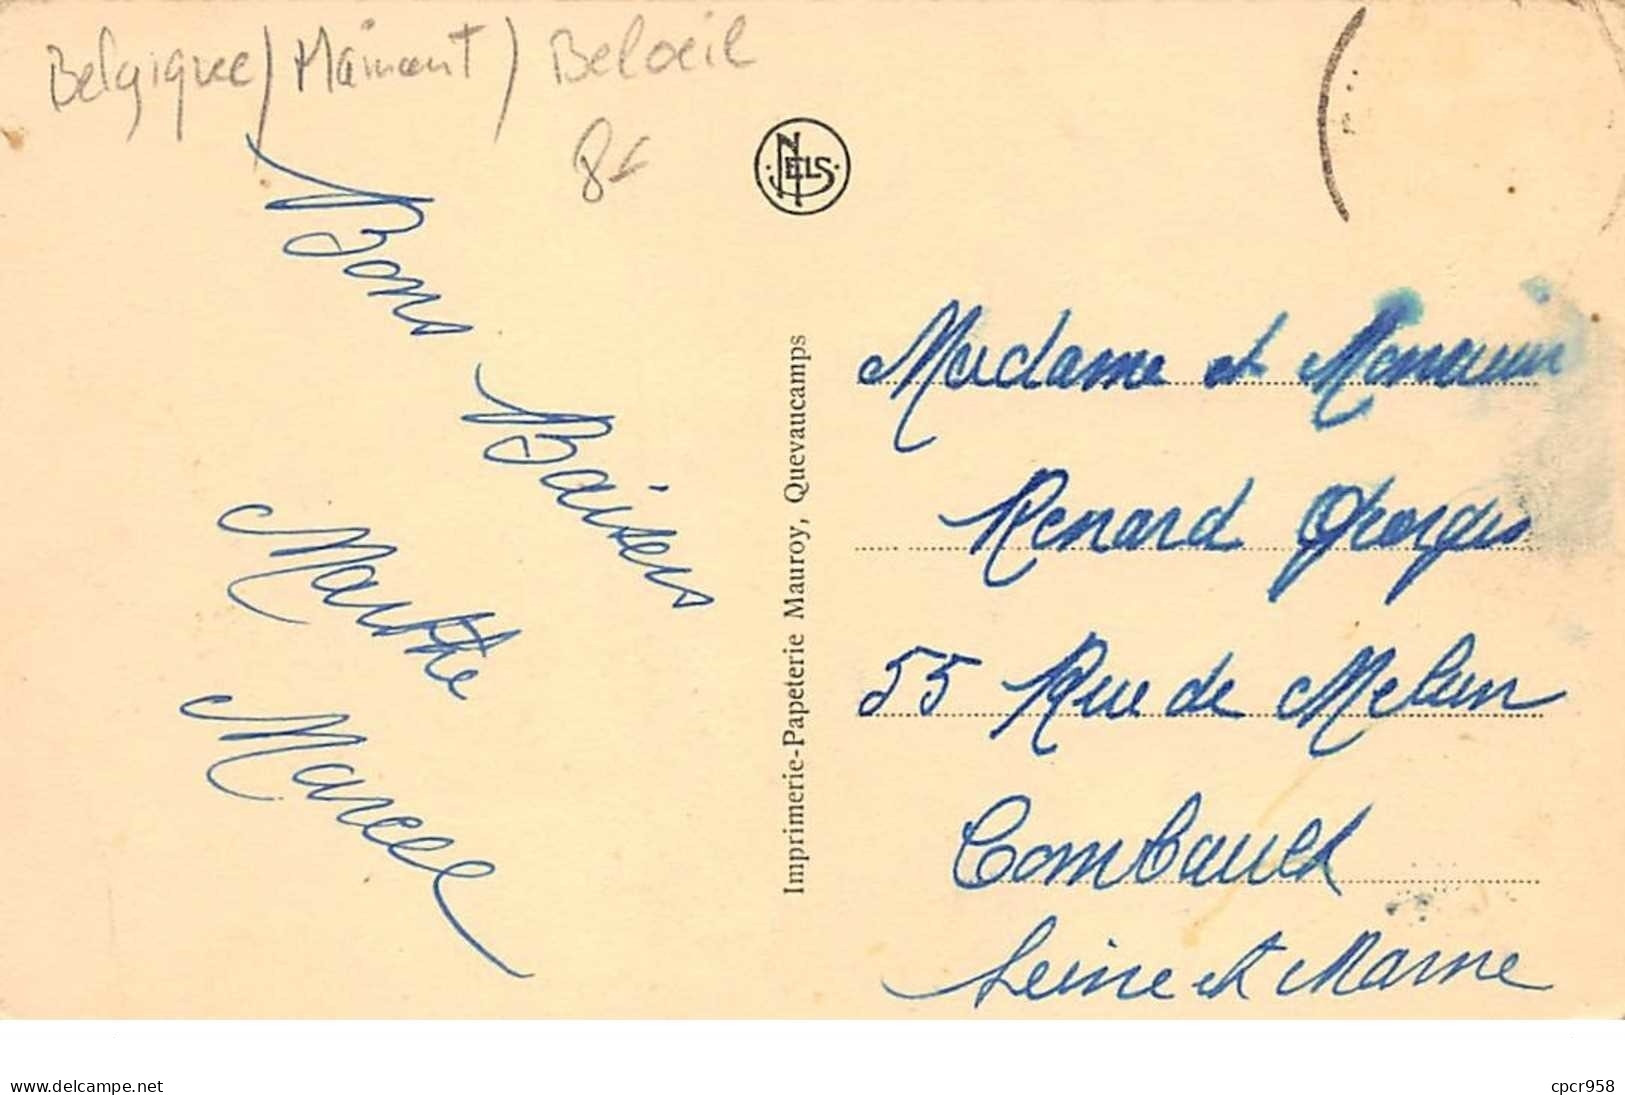 Belgique / Hainaut / Beloeil
8€
NELS
Bons Baisers
Marthe
Marcel
Imprimerie-Papeterie Mauroy, Quevaucamps
Madame et Monsieur
Renard Georges
55 Rue de Melun
Combault
Seine et Marne
www.delcampe.net
cpcr958